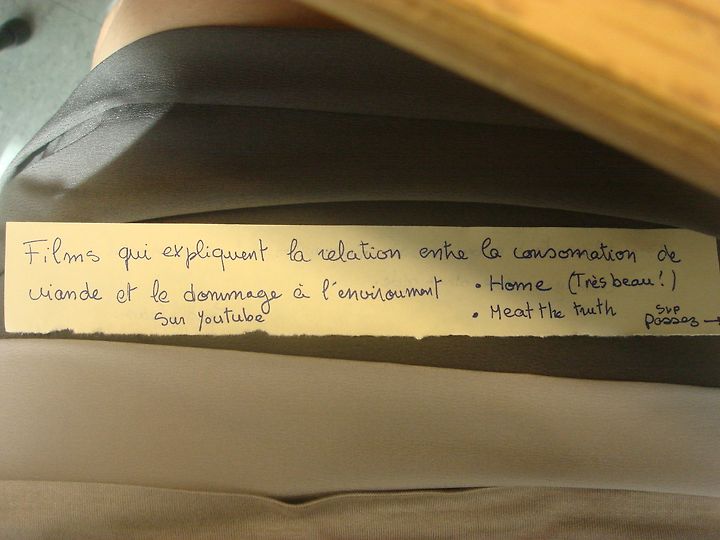 Films qui expliquent la relation entre la consomation de
viande et le dommage à l'enviroument • Home (Très beau!)
sur Youtube • Meat the truth SVP
passez →